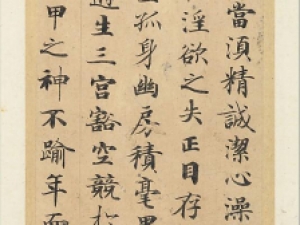 當湏精誠潔心澡
淫欲之失正目存
孤身幽房積毫累
遊生三宮豁空競於
甲之神不踰年而